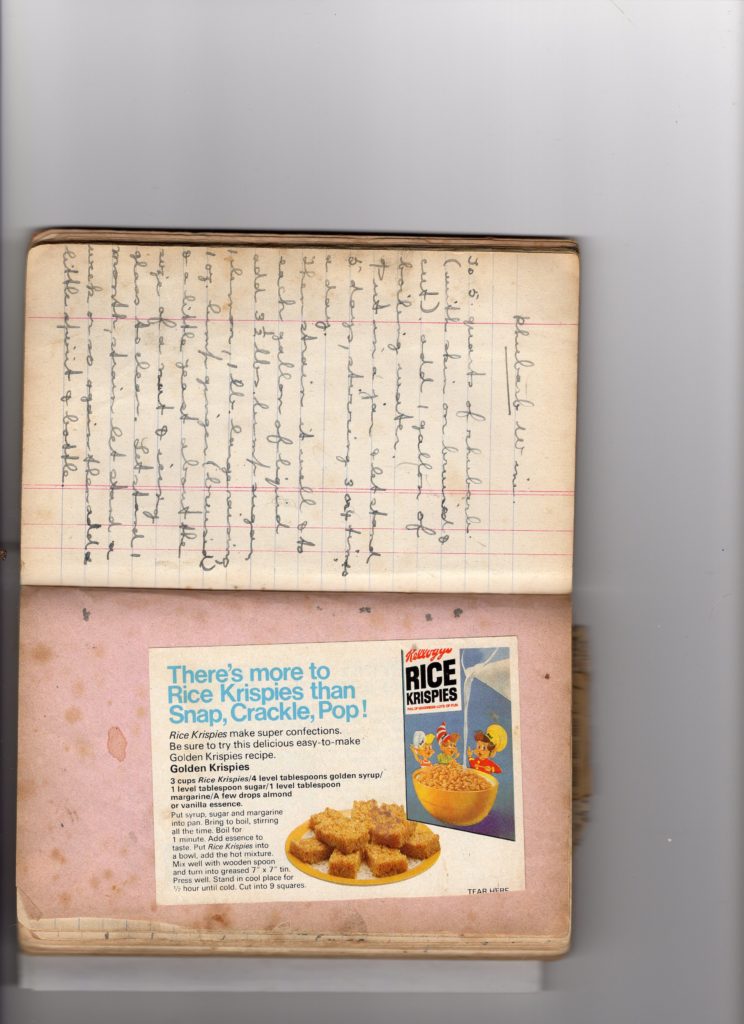 Rhubarb Wine.
To 5 quarts of rhubarb
(with skin on bruised &
cut) add 1 gallon of
boiling water.
Put in a jar & let stand
5 days, stirring 3 or 4 times
a day
Then strain it well & to
each gallon of liquid
add 3½ lbs lump sugar,
1 lemon, 1 lb large raisins
1 oz. lump ginger (bruised)
& a little yeast about the
size of a nut & icing
glass to clear. Let stand 1
month, strain let stand a
week or so again then add a
little spirit & bottle.
There's more to
Rice Krispies than
Snap, Crackle, Pop!
Rice Krispies make super confections.
Be sure to try this delicious easy-to-make
Golden Krispies recipe.
Golden Krispies
3 cups Rice Krispies/4 level tablespoons golden syrup/
1 level tablespoon sugar/1 level tablespoon
margarine/A few drops almond
or vanilla essence.
Put syrup, sugar and margarine
into pan. Bring to boil, stirring
all the time. Boil for
1 minute. Add essence to
taste. Put Rice Krispies into
a bowl, add the hot mixture.
Mix well with wooden spoon
and turn into greased 7" x 7" tin.
Press well. Stand in cool place for
½ hour until cold. Cut into 9 squares.
Kellogg's
RICE
KRISPIES
TEAR HERE